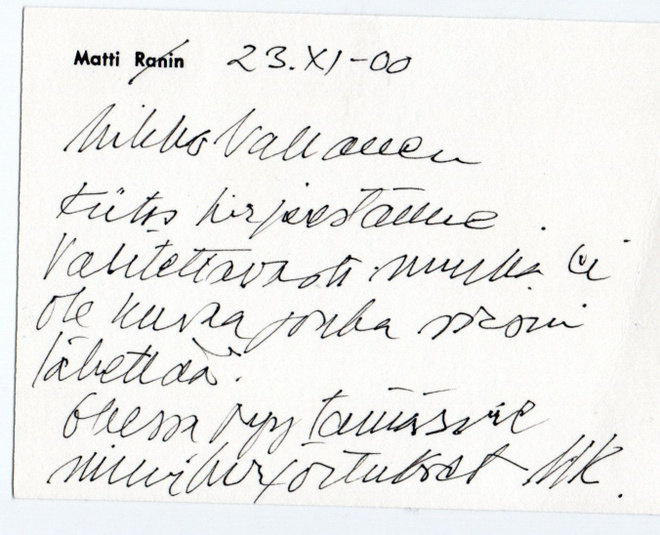 Matti Ranin 23.XI-00
Mikko Valtanen
Kiitos kirjeestänne.
Valitettavasti minulla ei
ole kuvaa jonka voisin
lähettää.
Ohessa pyytämänne
nimikirjoitukset